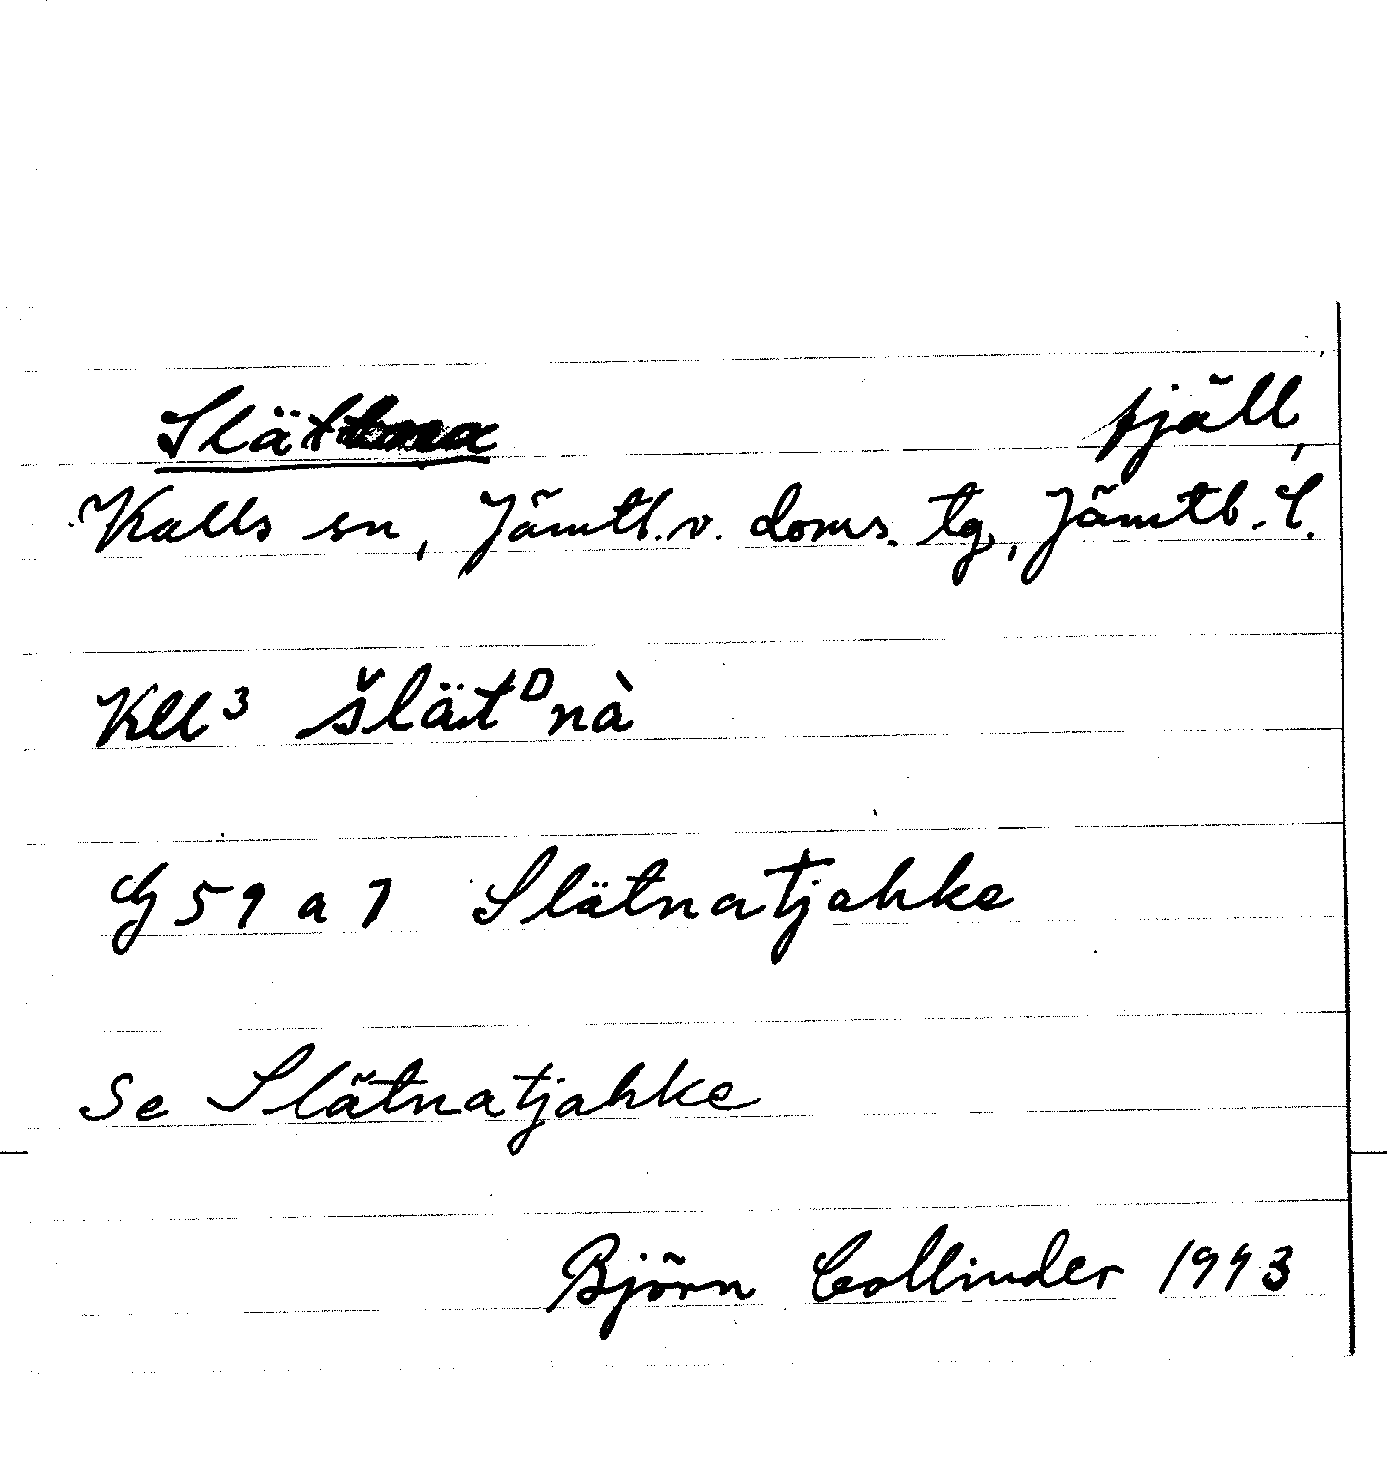 Slätna fjäll,
Kalls sn, Jämtl. v. doms. tg, Jämtl. l.
Kll³ šlätᴰnà
G 59 a 7 Slätnatjahke
Se Slätnatjahke
Björn Collinder 1943